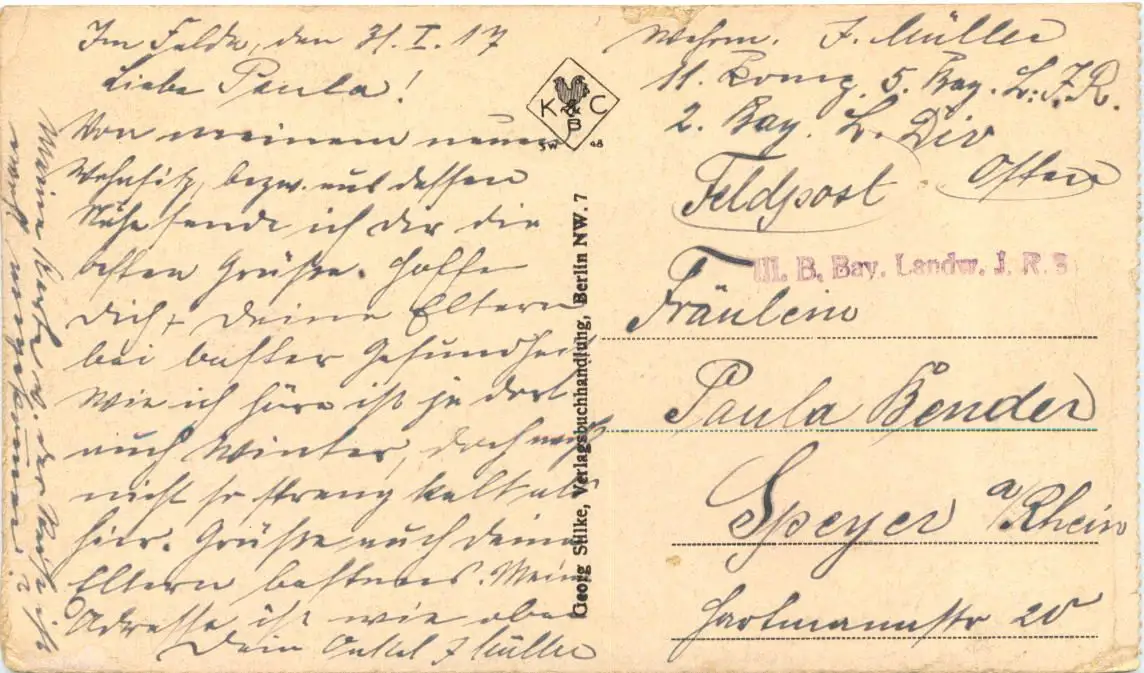 Im Felde, den 31. I. 17
Liebe Paula!
Von meinem neuen
Wohnsitz, bezw. aus dessen
Nähe sende ich dir die
besten Grüße. Hoffe
dich + deine Eltern
bei bester Gesundheit
Wie ich höre ist ja dort
auch Winter, doch
nicht so streng kalt als
hier. Grüße auch deine
Eltern bestens. Meine
Adresse ist wie oben
Dein Onkel J Müller
Meine Karte v. der ich
K & C
B
SW 48
Georg Stilke, Verlagsbuchhandlung, Berlin NW. 7
Wehrm. J. Müller
11. Komp. 5. Bay. L. J. R.
2. Bay. L. Div
Feldpost Osten
III. B. Bay. Landw. J. R. 5
Fräulein
Paula Bender
Speyer a/Rhein
Hartmannstr 20